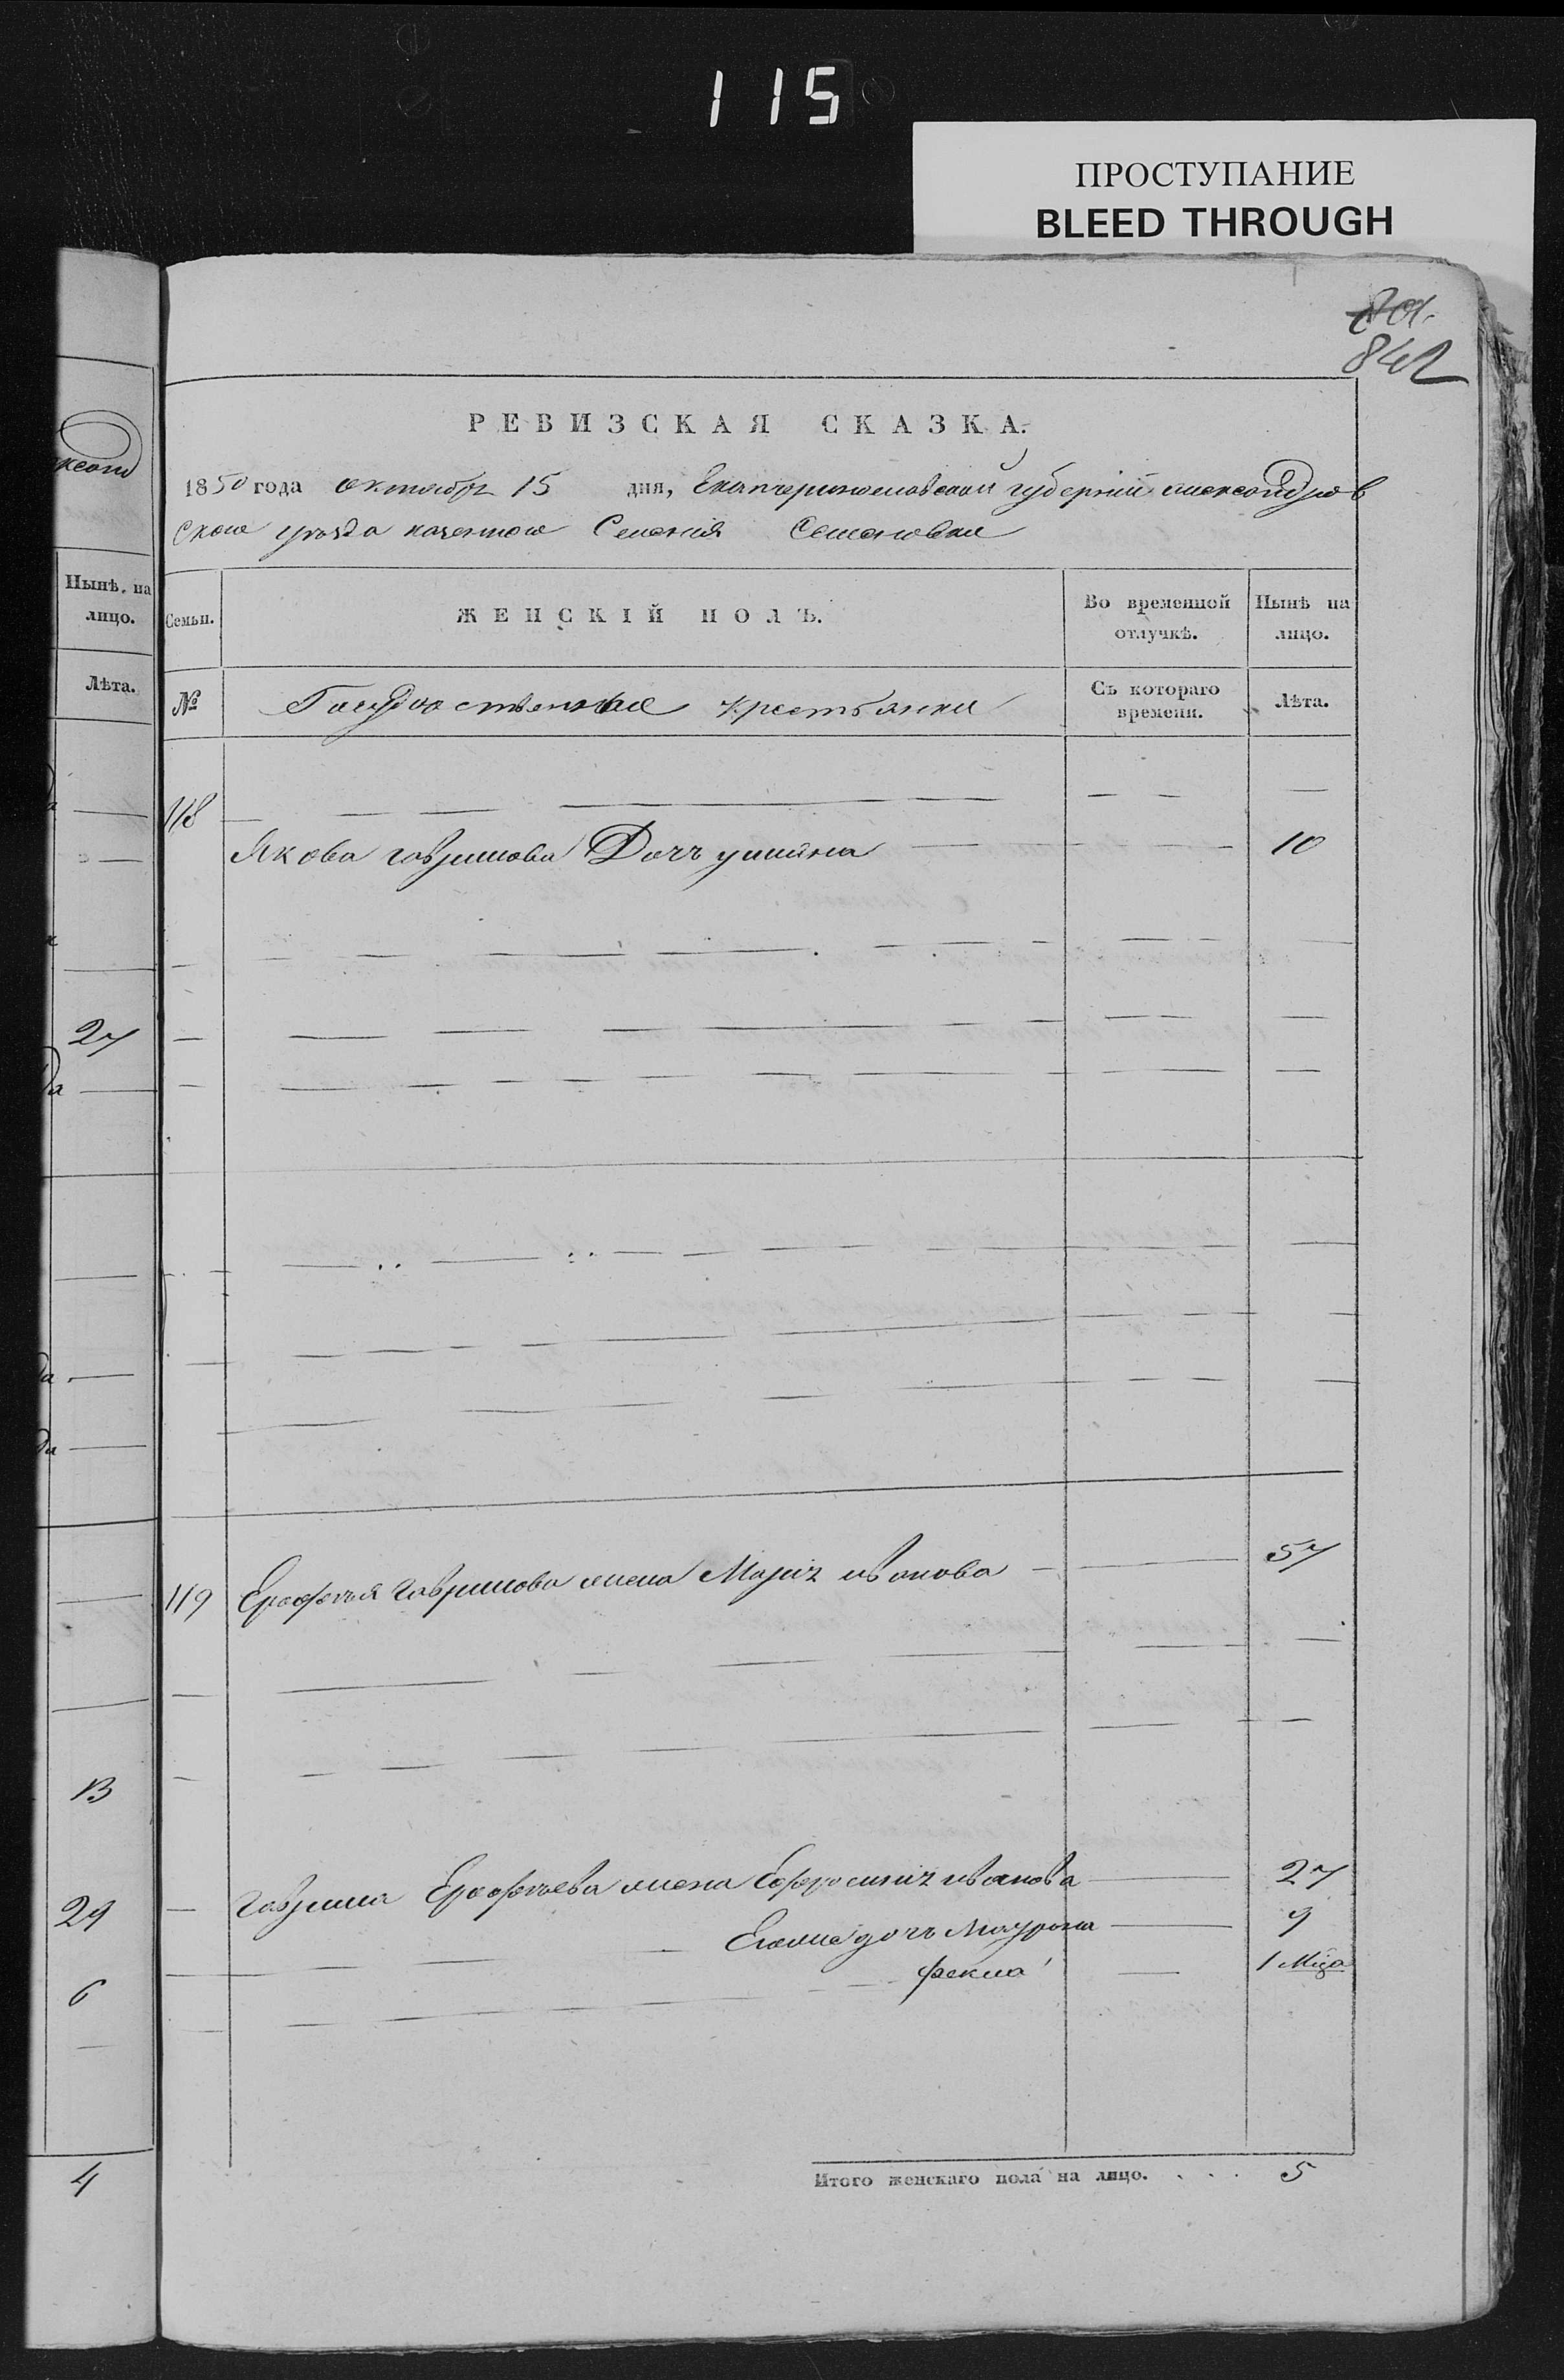 115
ПРОСТУПАНИЕ
BLEED THROUGH
842
РЕВИЗСКАЯ СКАЗКА.
1850 года октября 15 дня, Екатеринославской губернии александров
ского уезда казенного Селения Семеновки
Нынѣ на лицо.
Лѣта.
27
13
29
6
4
Семьи. ЖЕНСКІЙ ПОЛЪ. Во временной отлучкѣ. Нынѣ на лицо.
№ Государственные крестьянки Съ котораго времени. Лѣта.
118
Якова гаврилова Дочь улияна 10
119 Ерофея Гаврилова жена Марья иванова 57
гаврила Ерофеева жена Ефросинья иванова 27
Егоже дочь Маурона 9
фекла 1 Мца
Итого женскаго пола на лицо. . . . 5